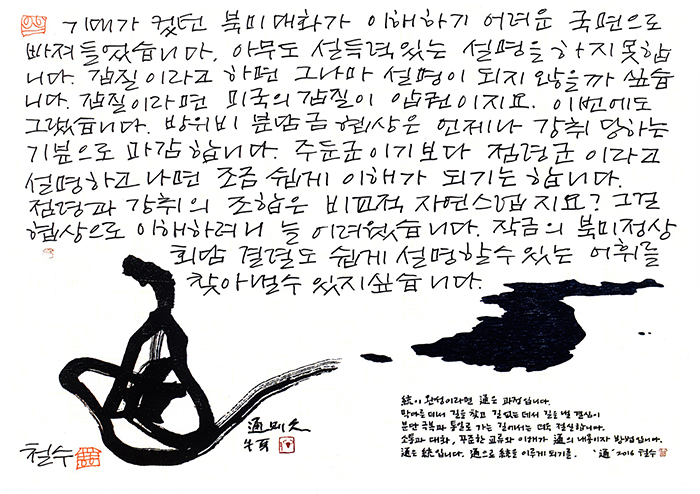 기대가 컸던 북미대화가 이해하기 어려운 국면으로
빠져들었습니다. 아무도 설득력있는 설명을 하지못합
니다. 갑질이라고 하면 그나마 설명이 되지 않을까 싶습
니다. 갑질이라면 미국의 갑질이 압권이지요. 이번에도
그랬습니다. 방위비 분담금 협상은 언제나 강취 당하는
기분으로 마감합니다. 주둔군이기보다 점령군 이라고
설명하고 나면 조금 쉽게 이해가 되기는 합니다.
점령과 강취의 조합은 비교적 자연스럽지요? 그걸
협상으로 이해하려니 늘 어려웠습니다. 작금의 북미정상
회담 결렬도 쉽게 설명할수있는 어휘를
찾아낼수 있지싶습니다.
철수
通則久
統이 완성이라면 通은 과정입니다.
막다른 데서 길을 찾고 길 없는 데서 길을 낼 결심이
분단 극복과 통일로 가는 길에서는 더욱 절실합니다.
소통과 대화, 꾸준한 교류와 이해가 通의 내용이자 방법입니다.
通은 統입니다. 通으로 統을 이루게 되기를. '通' 2016 철수